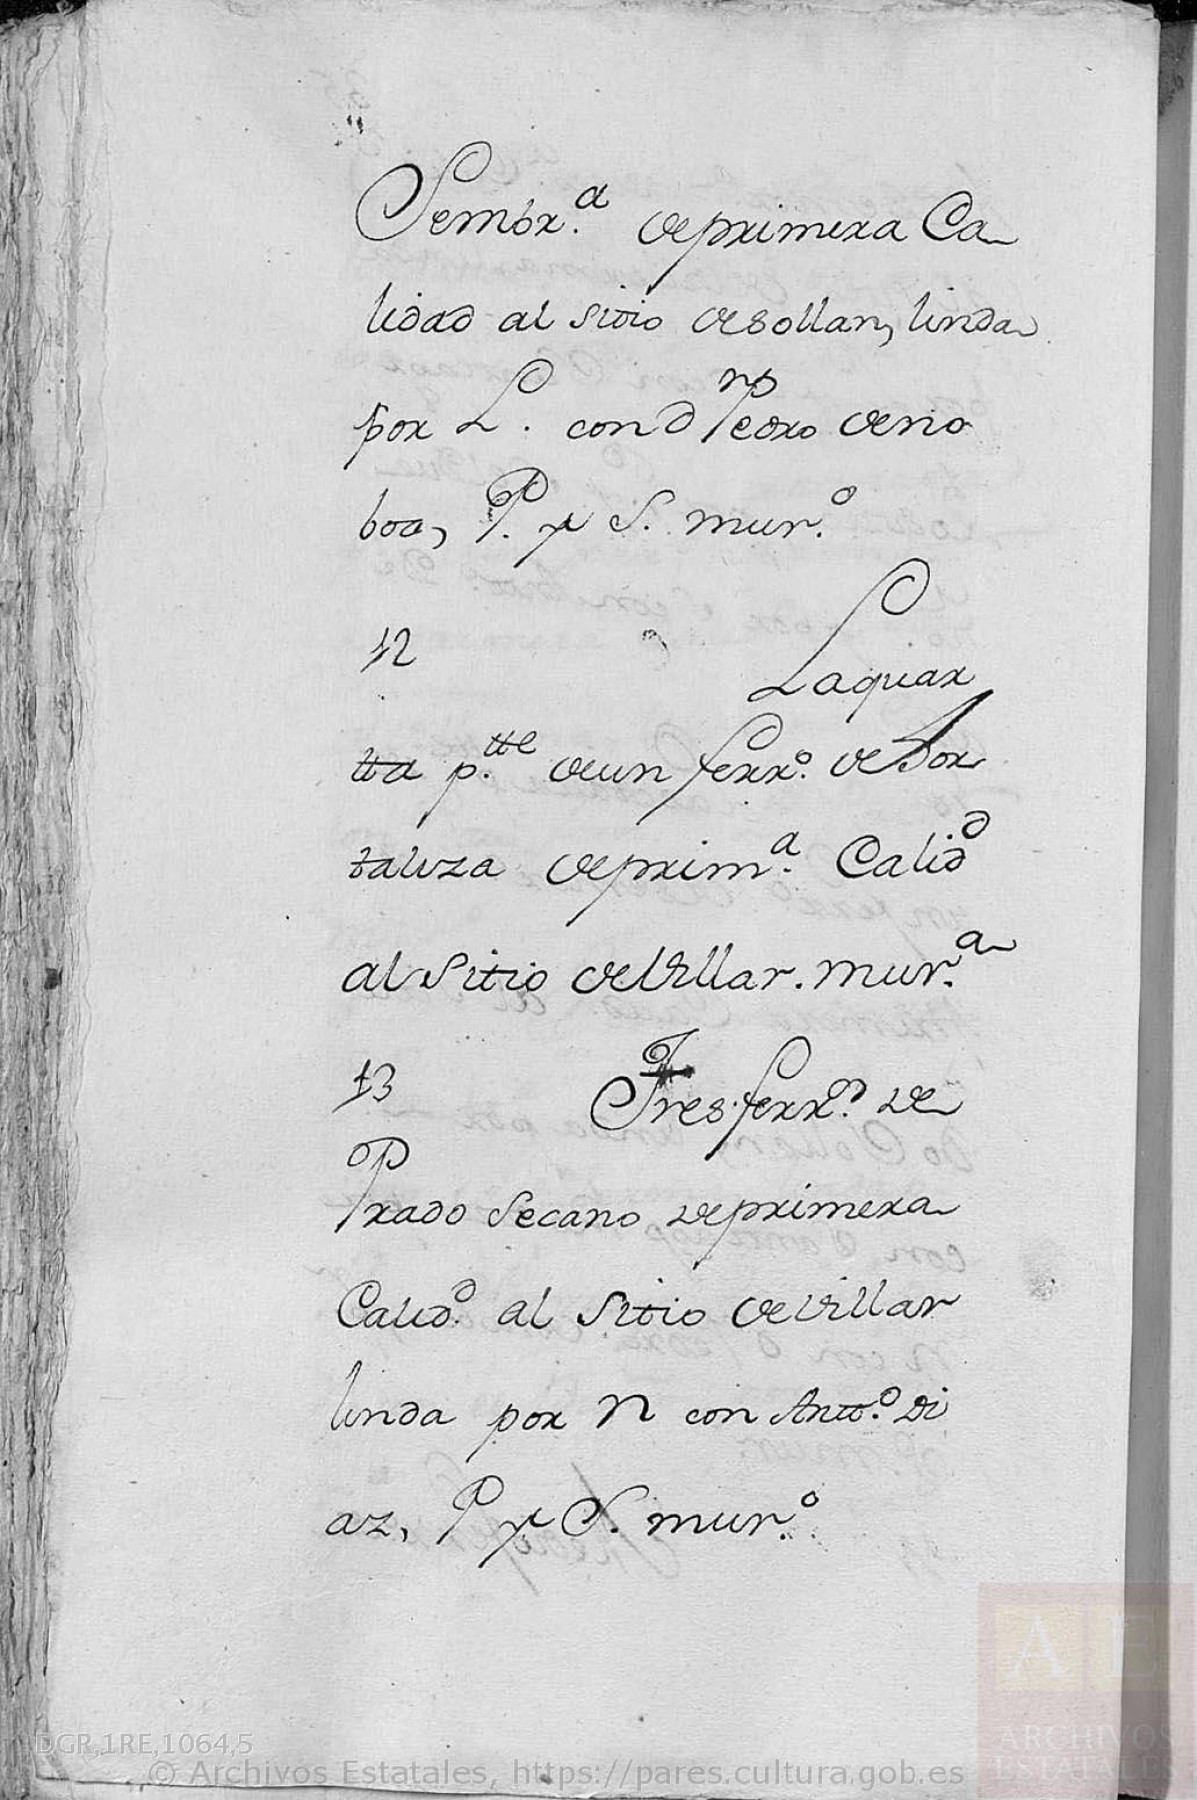 Sembr.ª de primera Ca
lidad al sitio de sollan, linda
por L. con D.n Pedro de no
boa, P. y S. mur.º
12 La quar
tta p.tte de un ferr.º de Hor
taliza de prim.ª Calid.d
al sitio del Villar. mur.ª
13 Tres ferr.s de
Prado Secano de primera
Calid.d al Sitio del Villar
linda por N con Antt.º Di
az, P y S. mur.º
DGR,1RE,1064,5
© Archivos Estatales, https://pares.cultura.gob.es
AE
ARCHIVOS
ESTATALES